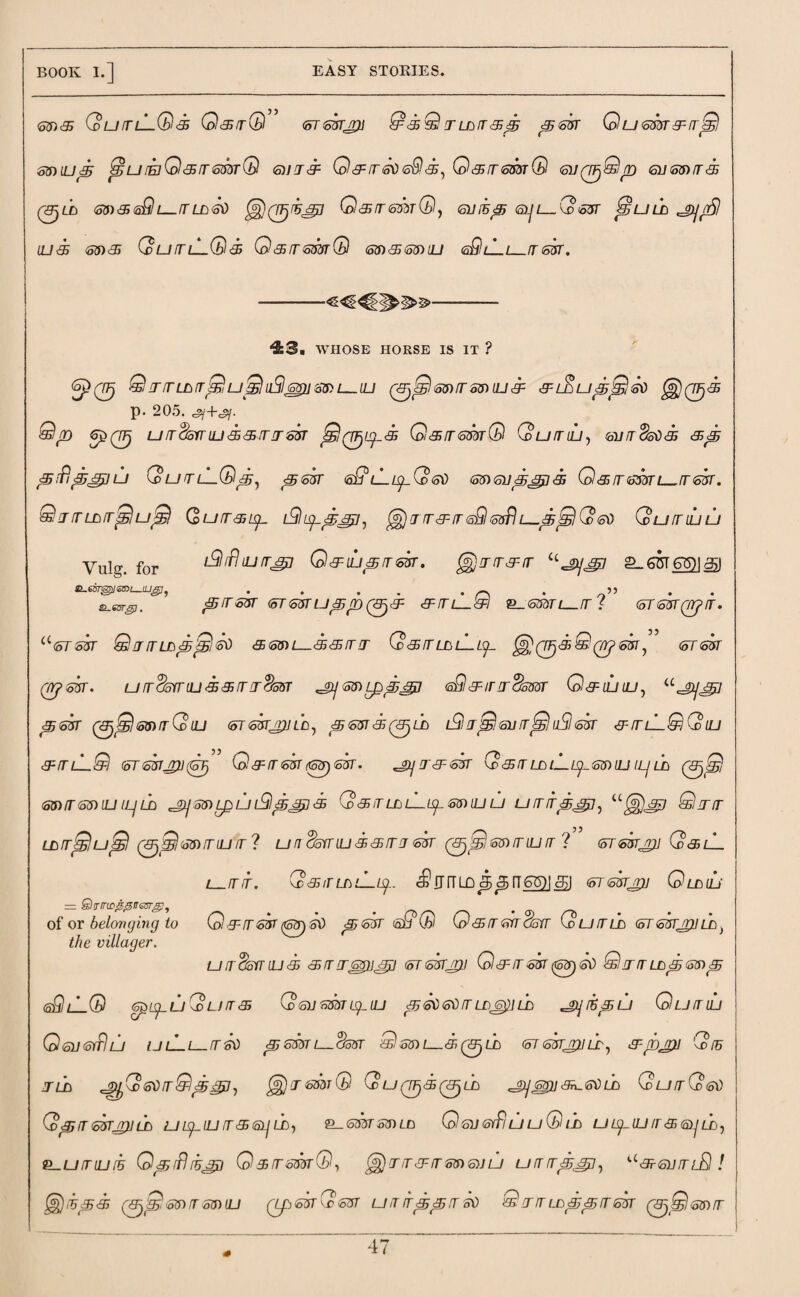 BOOK I.] EASY STORIES.
கைக் போட்டுக் கொடு” என்று சீக்கிரமாகத் தன் பெண்சாதி
யைத் தீபங்கொண்டு வரச் சொல்லிக், கொண்டு வருகிற வரைக்
கும் கைவிடாமல் இருந்து கொண்டு, வந்த வுடனே தீபம் அறி
யக் கைக் போட்டுக் கொண்டு கையை விட்டான்.
43. WHOSE HORSE IS IT ?
ஒரு கிராமாதிபதியினுடைய குதிரையைச் சமீபத்தில் இருக்
p. 205. அ+அ.
கிற ஒரு பாளையக்காரன் திருடிக் கொண்டு போய், வாலைக் கத்
தரித்துப் போட்டுத், தன் வீட்டிலே வைத்துக் கொண்டான்.
கிராமாதிபதி போகடி பிடித்து, இராசாவினிடத்திலே போய்ப்
Vulg. for உன்னுடையது, உனது.
பிரியாது செய்தான். இராசா “அது உன்னது
தான் என்பதற்குச் சாட்சி உண்டா ? என்றார்.
“என் கிராமத்தில் கடைக்கார கோமட்டி இருக்கிறான்,” என்
றான். பாளையக்காரனை அழைத்து விசாரணை செய்ய, “அது
தன் குதிரையே என்றும், தனக்கும் பிரதிவாதியின் சாட்சியே
சாட்சி என்றுஞ்” சொன்னான். அரசன் கோமட்டியையும் குதி
ரையையும் அழைப்பித்துக் கோமட்டியைப் பார்த்து, “இது கிரா
மாதிபதி குதிரையா ? பாளையக்காரன் குதிரையா ?” என்று கேட்
டார். கோமட்டி. கிராமத்தானது என்று மெய்
= கிராமத்தானது, of or belonging to the villager.
சொன்னால் தன் வீடு கொள்ளை போம் என்றும்,
பாளையக் காரனுது என்று சொன்னால் கிராமத்தை
விட்டு ஓடிப்போக வேண்டிய தல்லாமலும் அந்தப் பொய்
வெளிப் பட்டால் தண்டனை கிடைக்கும் என்றும், சற்று நே
ரம் ஆலோசித்து, இரண்டு பேருக்கும் அனுகூலம் போலே
தோன்றும் படியாகவும், உண்மை வெளிப்படும் படியாகவும்,
உபாயந் தெரிந்து கொண்டு, இராசாவைப் பார்த்து, “சுவாமி !
இந்தக் குதிரையை முன்னே பார்த்தால் கிராமத்தான் குதிரை
47